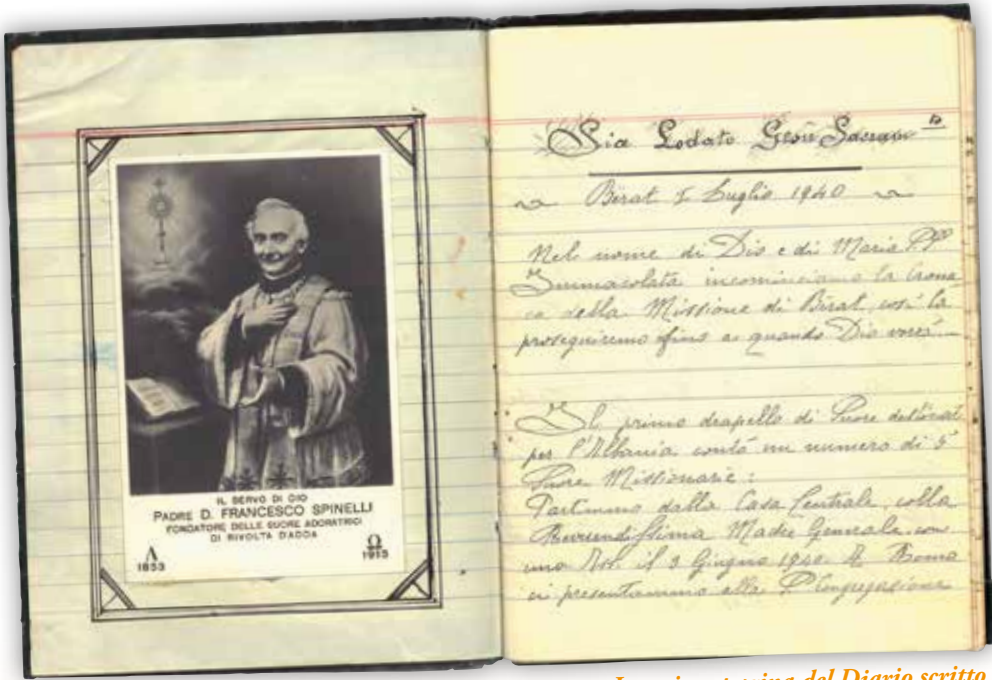 IL SERVO DI DIO
PADRE D. FRANCESCO SPINELLI
FONDATORE DELLE SUORE ADORATRICI
DI RIVOLTA D'ADDA
Λ Ω
1853 1913
Sia Lodato Gesù Sacram to
Berat Luglio 1940
Nel nome di Dio e di Maria SS
Immacolata incominciamo la Crona
ca della Missione di Berat, così la
proseguiremo fino a quando Dio vorrà
Il primo drapello di Suore destinat
per l'Albania contò un numero di 5
Suore Missionarie:
Partimmo dalla Casa Centrale, colla
Reverendissima Madre Generale, con
una il 3 Giugno 1940. A Roma
ci presentammo alla S. Congregazione
La prima pagina del Diario scritto